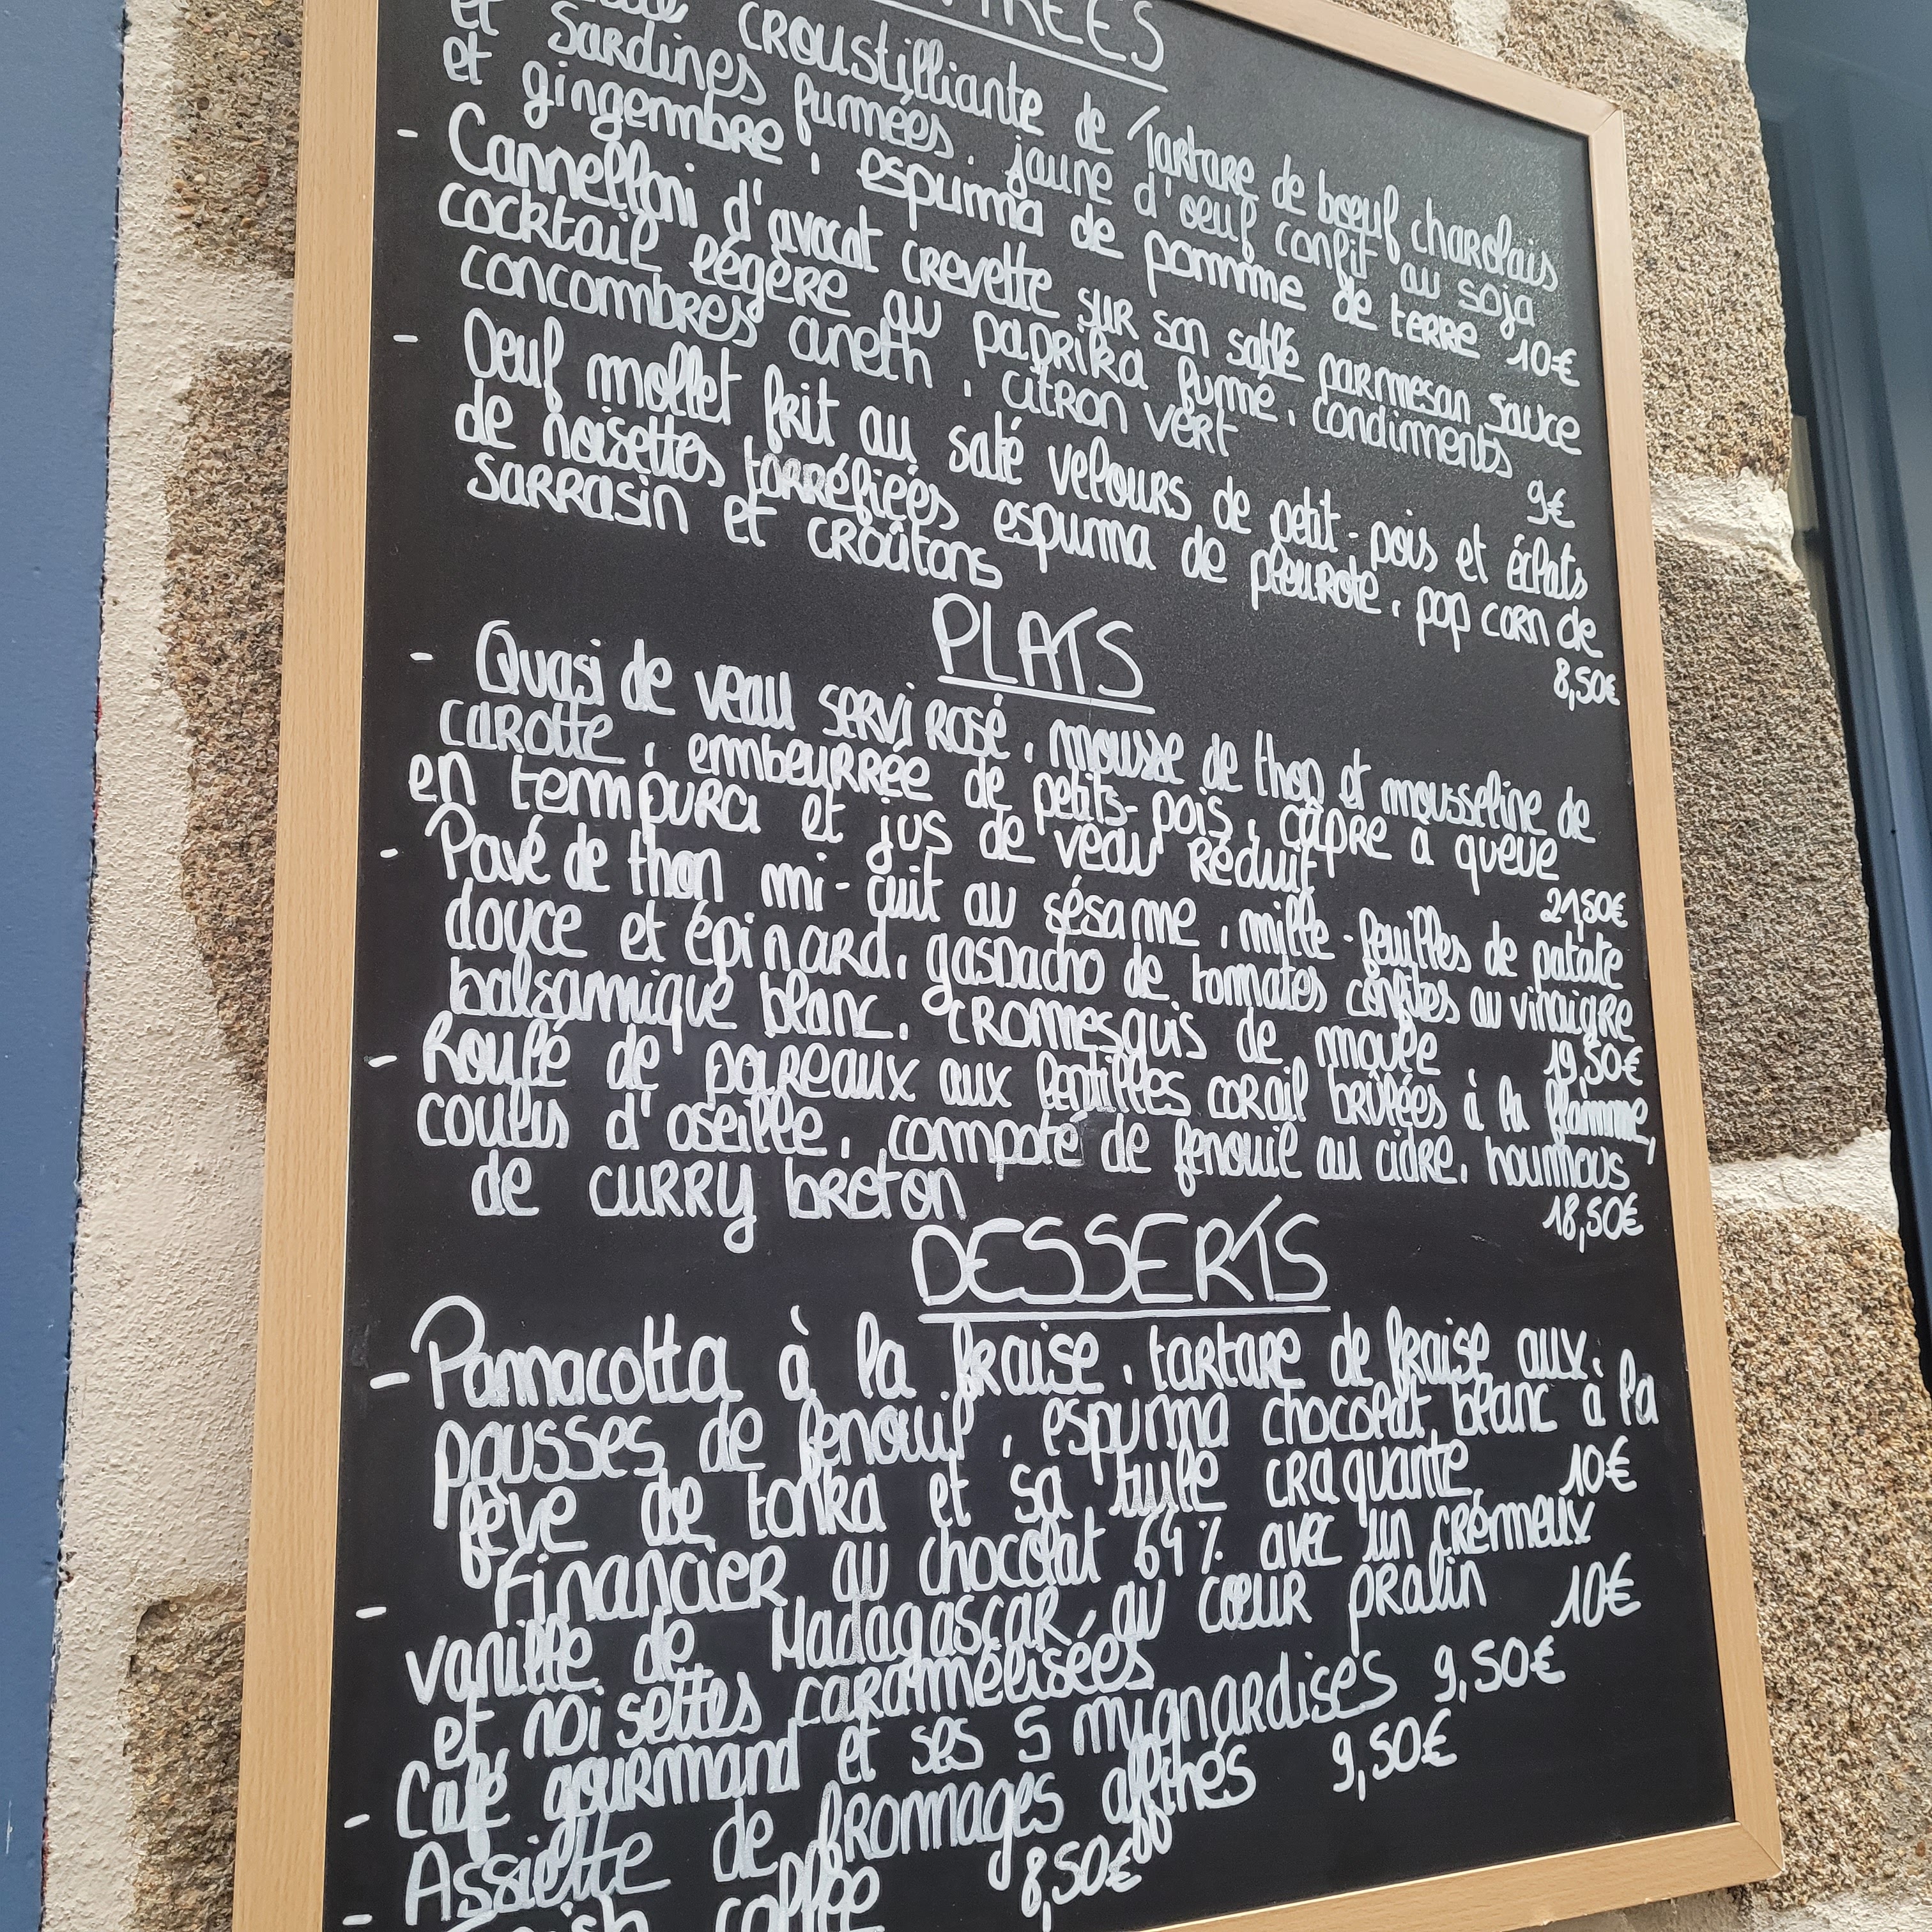 croustilliante de Tartare de bœuf charolais
et Sardines fumées, jaune d'oeuf confit au soja
et gingembre, espuma de pomme de terre 10€
- Cannelloni d'avocat crevette sur son sablé parmesan sauce
cocktail légère au paprika fumé, condiments
concombres aneth, citron vert 9€
- Oeuf mollet frit au saté velours de petit-pois et éclats
de noisettes torréfiées espuma de pleurote, pop corn de
sarrasin et croûtons 8,50€
PLATS
- Quasi de veau servi rosé, mousse de thon et mousseline de
carotte, embeurrée de petits-pois, câpre à queue
en tempura et jus de veau réduit 21,50€
- Pavé de thon mi-cuit au sésame, mille-feuilles de patate
douce et épinard, gaspacho de tomates confites au vinaigre
balsamique blanc, cromesquis de moule 19,50€
- Roulé de poireaux aux lentilles corail brûlées à la flamme,
coulis d'oseille, compoté de fenouil au cidre, houmous
de curry breton 18,50€
DESSERTS
- Pannacotta à la fraise, tartare de fraise aux
pousses de fenouil, espuma chocolat blanc à la
fève de tonka et sa tuile craquante 10€
- Financier au chocolat 64% avec un crémeux
vanille de Madagascar, au cœur pralin 10€
et noisettes caramélisées
- Café gourmand et ses 5 mignardises 9,50€
- Assiette de fromages affinés 9,50€
coffee 8,50€